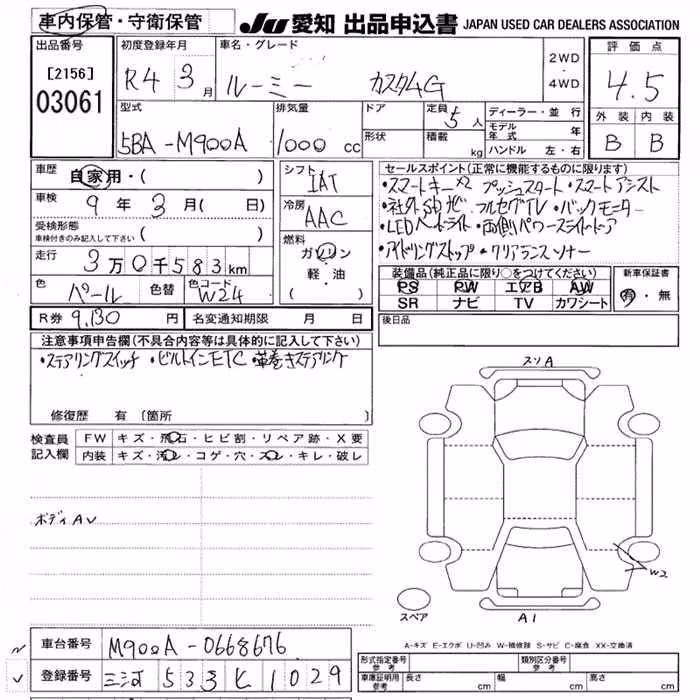 車内保管・守衛保管
JU 愛知 出品申込書 JAPAN USED CAR DEALERS ASSOCIATION
出品番号
[2156]
03061
初度登録年月
R4 3月
車名・グレード
ルーミー カスタムG
2WD
・
4WD
評価点
4.5
外装 内装
B B
型式
5BA-M900A
排気量
1000 cc
ドア
形状
定員 5人
積載 kg
ディーラー・並行
モデル年式 年
ハンドル 左・右
車歴
自家用・( )
車検
9年 3月( 日)
受検形態
車検付きのみ記入して下さい ( )
走行
3万0千583km
色 パール 色替 色コード W24
シフト
IAT
冷房
AAC
燃料
ガソリン
軽・油
( )
セールスポイント(正常に機能するものに限ります)
・スマートキー×2 プッシュスタート・スマートアシスト
・社外SDナビ フルセグTV・バックモニター
・LEDヘッドライト・両側パワースライドドア
・アイドリングストップ・クリアランスソナー
装備品(純正品に限り○をつけてください)
PS PW エアB AW
SR ナビ TV カワシート
新車保証書
有・無
R券 9,130円 名変通知期限 月 日
後日品
注意事項申告欄(不具合内容等は具体的に記入して下さい)
・ステアリングスイッチ ・ビルトインETC ・革巻きステアリング
修復歴 有〔箇所 〕
検査員
記入欄
FW キズ・飛石・ヒビ割・リペア跡・X要
内装 キズ・汚レ・コゲ・穴・スレ・キレ・破レ
ボディAV
スソA
W2
スペア
A1
A-キズ E-エクボ U-凹み W-補修跡 S-サビ C-腐食 XX-交換済
車台番号 M900A-0668676
登録番号 三河 533 ヒ 1029
形式指定番号
参考
類別区分番号
参考
車庫証明用
参考
長さ cm 幅 cm 高さ cm